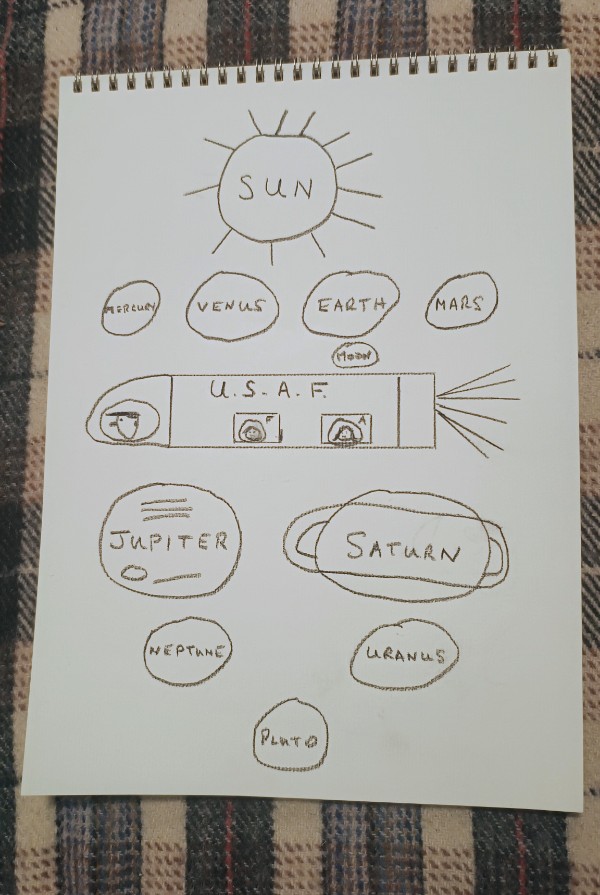 SUN
MERCURY
VENUS
EARTH
MARS
MOON
U.S.A.F.
F
A
JUPITER
SATURN
NEPTUNE
URANUS
PLUTO